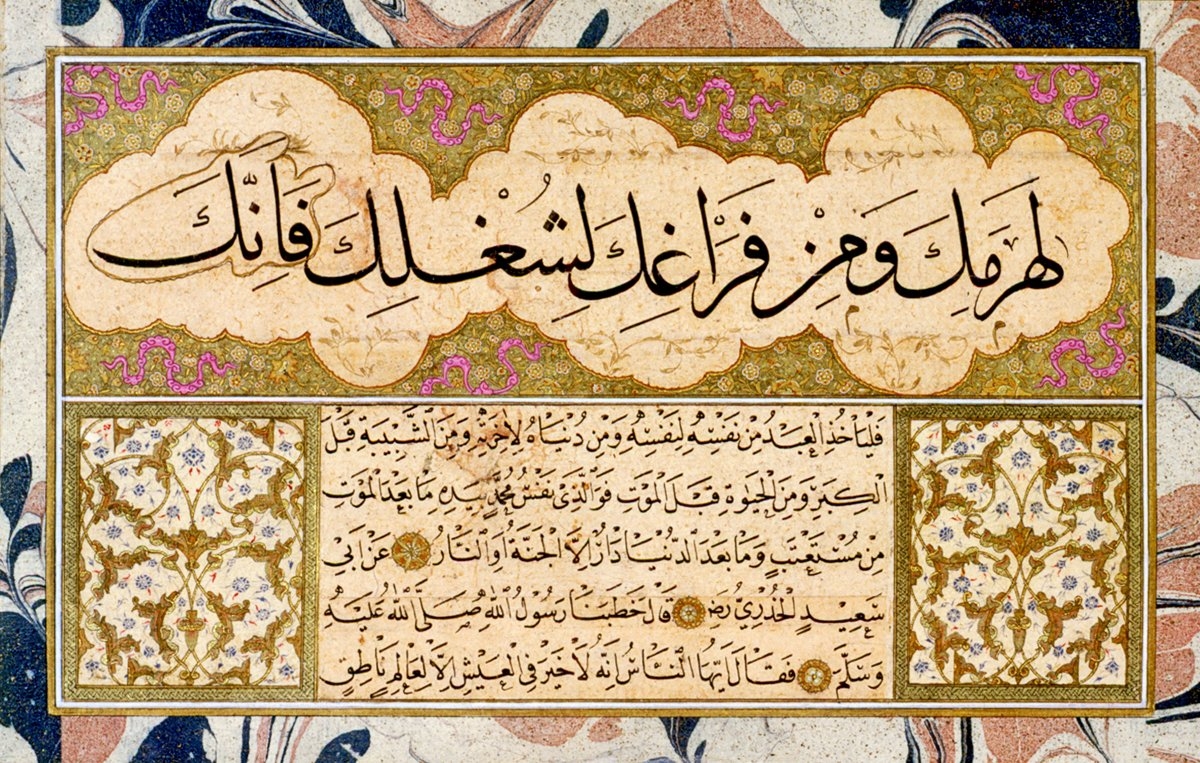 لهرمك ومن فراغك لشغلك فانك
فليأخذ العبد من نفسه لنفسه ومن دنياه لآخرته ومن الشبيبة قبل
الكبر ومن الحيوة قبل الموت فوالذي نفس محمد بيده ما بعد الموت
من مستعتب وما بعد الدنيا دار الا الجنة او النار عن ابي
سعيد الخدري رض قال خطبنا رسول الله صلى الله عليه
وسلم فقال ايها الناس انه لا خير في العيش الا لعالم ناطق